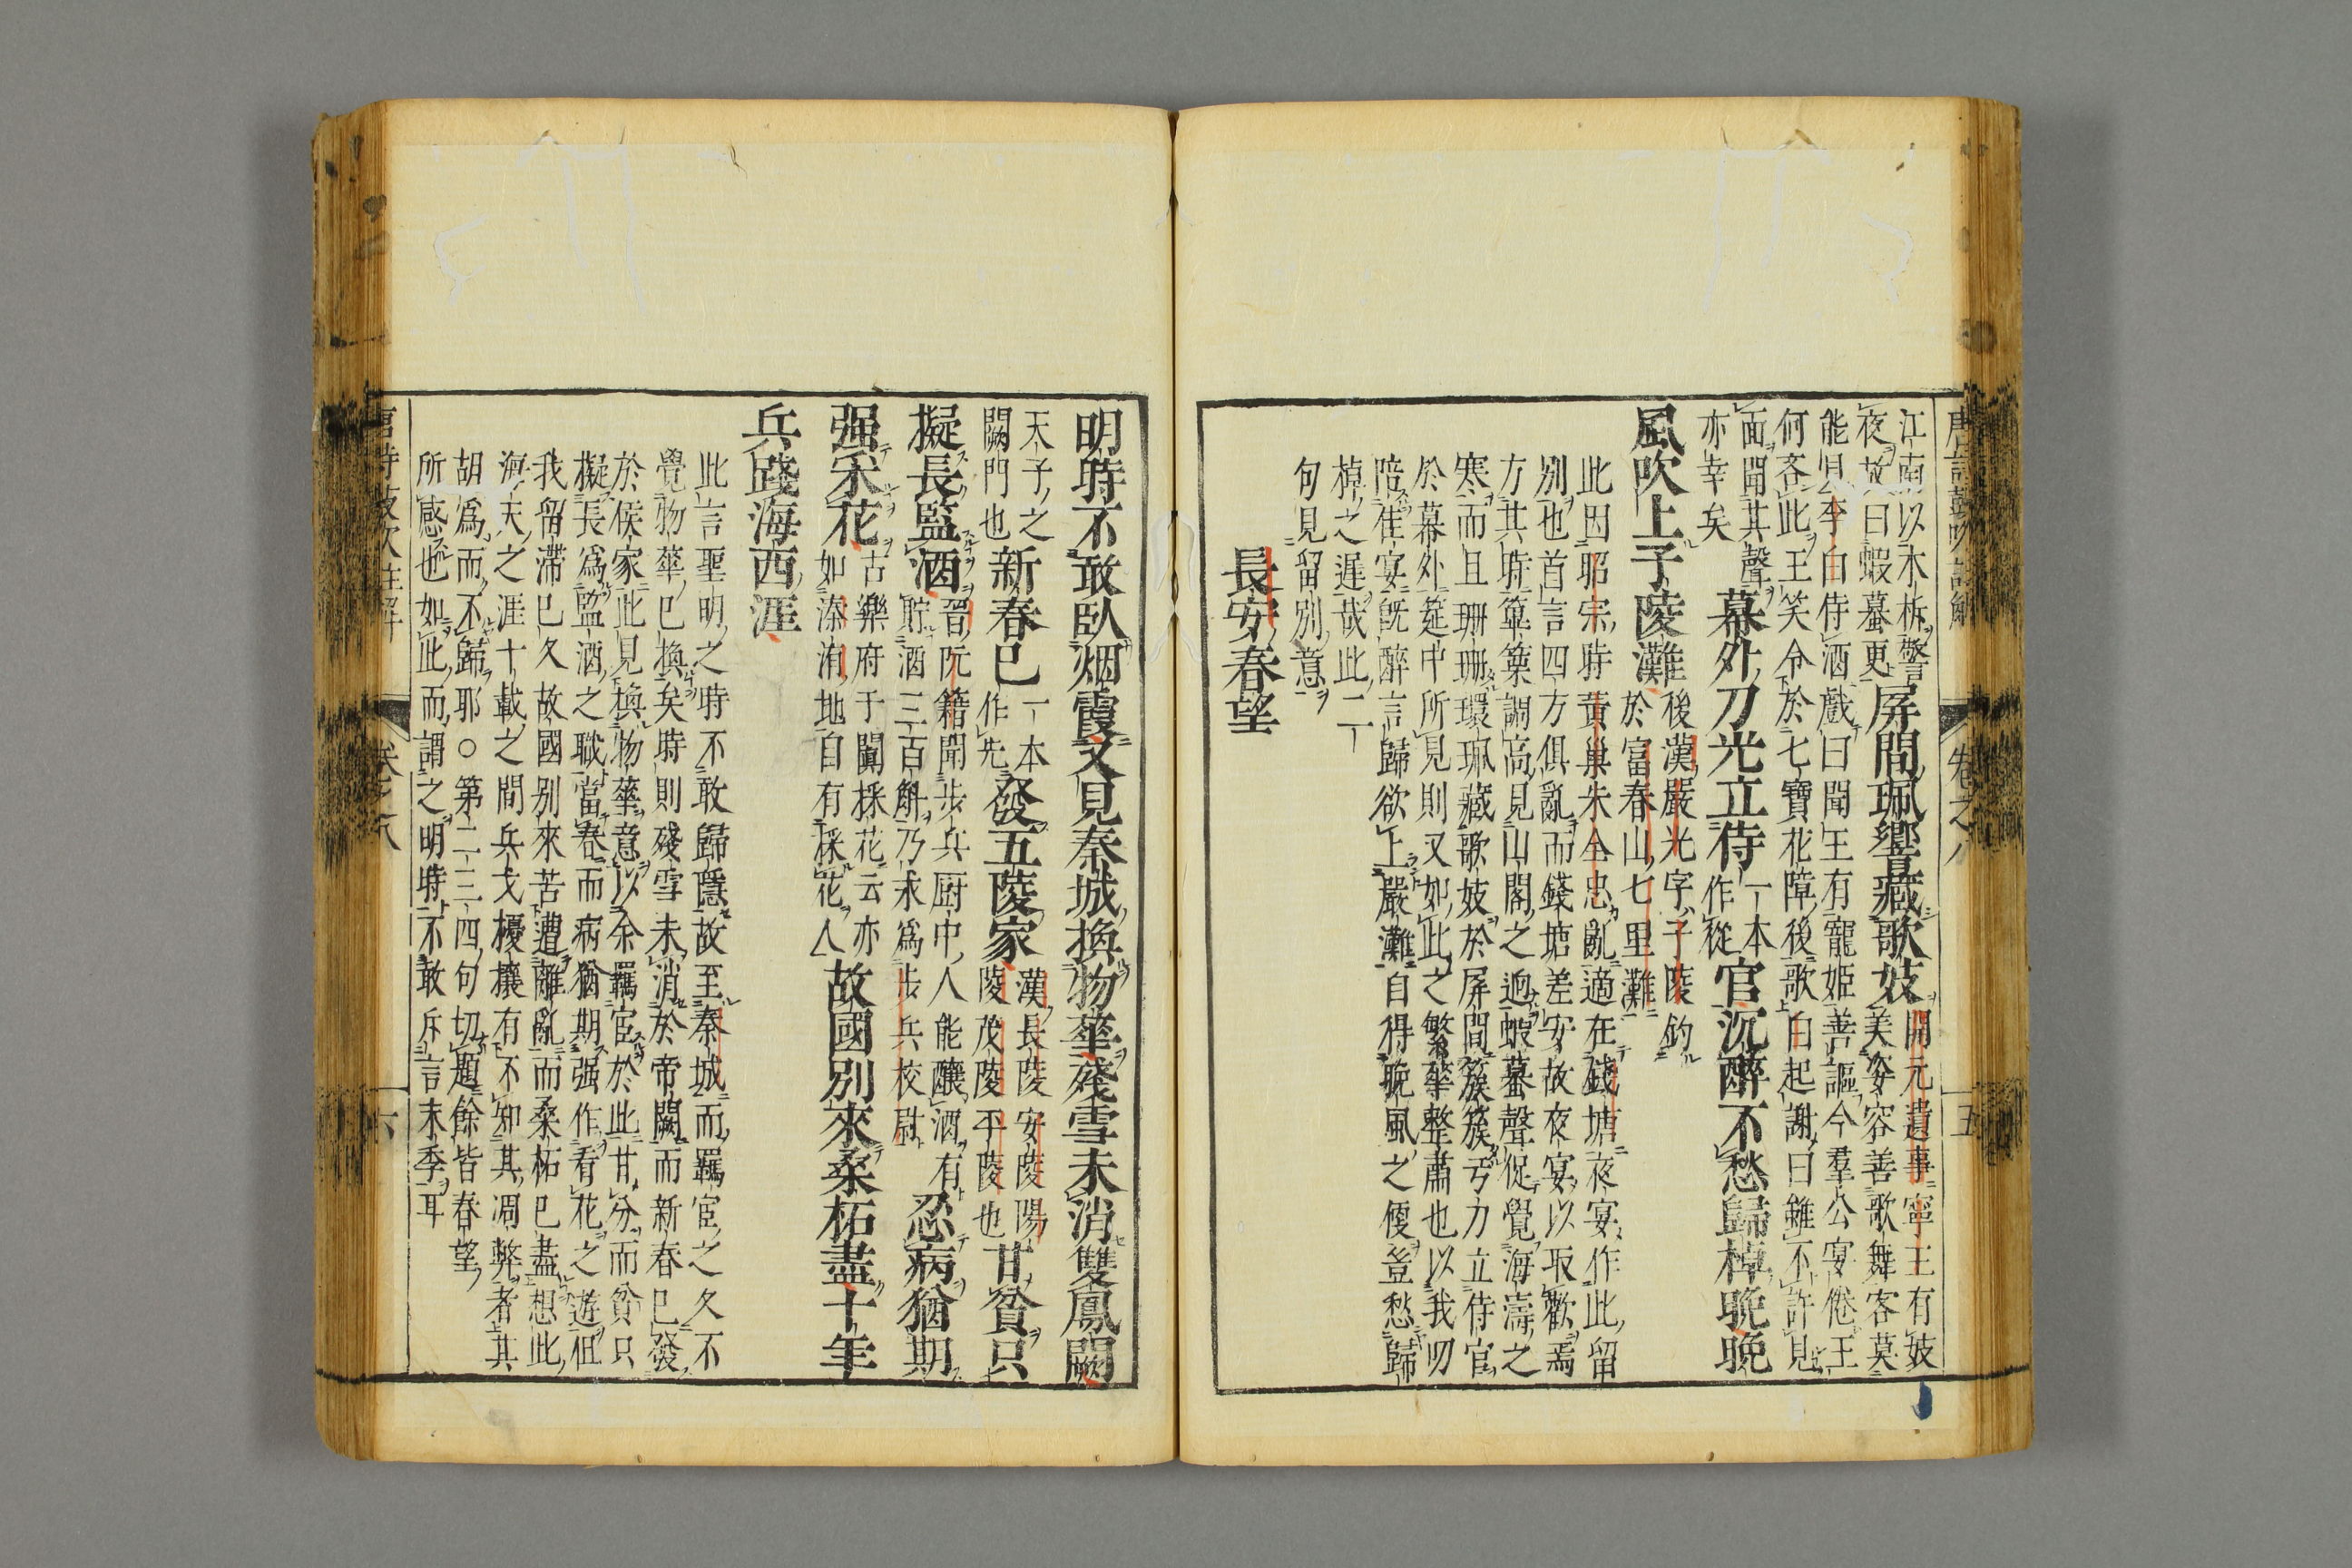 唐詩鼓吹註解 卷之八 五
江南以木柝警
夜故曰蝦蟇更
屏間珮響藏歌妓
開元遺事寧王有妓
美姿容善歌舞客莫
能見李白侍酒戲曰聞王有寵姬善謳今羣公宴倦王
何吝此王笑令於七寶花障後歌白起謝曰雖不許見
面聞其聲
亦幸矣
幕外刀光立侍
一本
作從
官沉醉不愁歸棹晚晚
風吹上子陵灘
後漢嚴光字子陵釣
於富春山七里灘
此因昭宗時黃巢朱全忠亂適在錢塘夜宴作此留
別也首言四方俱亂而錢塘差安故夜宴以取歡焉
方其時箄築調高見山閣之逈蝦蟇聲促覺海濤之
寒而且珊珊環珮藏歌妓於屏間簇簇弓力立侍官
於幕外筵中所見則又如此之繁華整肅也以我叨
陪佳宴既醉言歸欲上嚴灘自得晚風之便豈愁歸
棹之遲哉此二
句見留別意
長安春望
明時不敢臥烟霞又見秦城換物華殘雪未消雙鳳闕
天子之
闕門也
新春巳
一本
作先
發五陵家
漢長陵安陵陽
陵茂陵平陵也
甘貧只
擬長監酒
晉阮籍聞步兵厨中人能釀酒有
貯酒三百斛乃求爲步兵校尉
忍病猶期
强采花
古樂府于闐採花云亦
如溱洧地自有採花人
故國別來桑柘盡十年
兵踐海西涯
此言聖明之時不敢歸隱故至秦城而羈宦之久不
覺物華巳換矣時則殘雪未消於帝闕而新春巳發
於侯家此見換物華意以余羈宦於此甘分而貧只
擬長爲監酒之職當春而病猶期强作看花之遊但
我留滯巳久故國別來苦遭離亂而桑柘巳盡想此
海天之涯十載之間兵戈擾攘有不知其凋弊者其
胡爲而不歸耶○第二三四句切題餘皆春望
所感也如此而謂之明時不敢斥言末季耳
唐詩鼓吹註解 卷之八 六